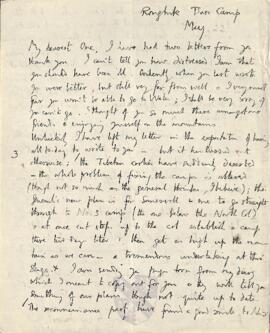 Rongbuk Base Camp
May 22
My dearest One, I have had two letters from you
thank you I can't tell you how distressed I am that
you should have been ill. Evidently when you last wrote
you were better, but still very far from well & I very much
fear you won't be able to go to ; I shall be very sorry if
you can't go. I thought of you so much there amongst our
friends & enjoying yourself in the mountains.
I left my letter in the expectation of having
all to-day to write to you - but it has turned out
3 otherwise; the Tibetan coolies have deserted
& the whole problem of fixing the camps is altered
(though not so much on the general idea, I believe); the
new plan is for Somervell & me to go straight
through to No. 3 camp (the one below the North Col)
& at once cut steps up to the col establish a camp
there & then get as high up the moun-
tain as we can - a tremendous undertaking at this
stage. I am sending you pages torn from my diary
which I meant to copy out for you & they will tell you
something of our plans though not quite up to date.
The reconnaissance party have found a good route to No